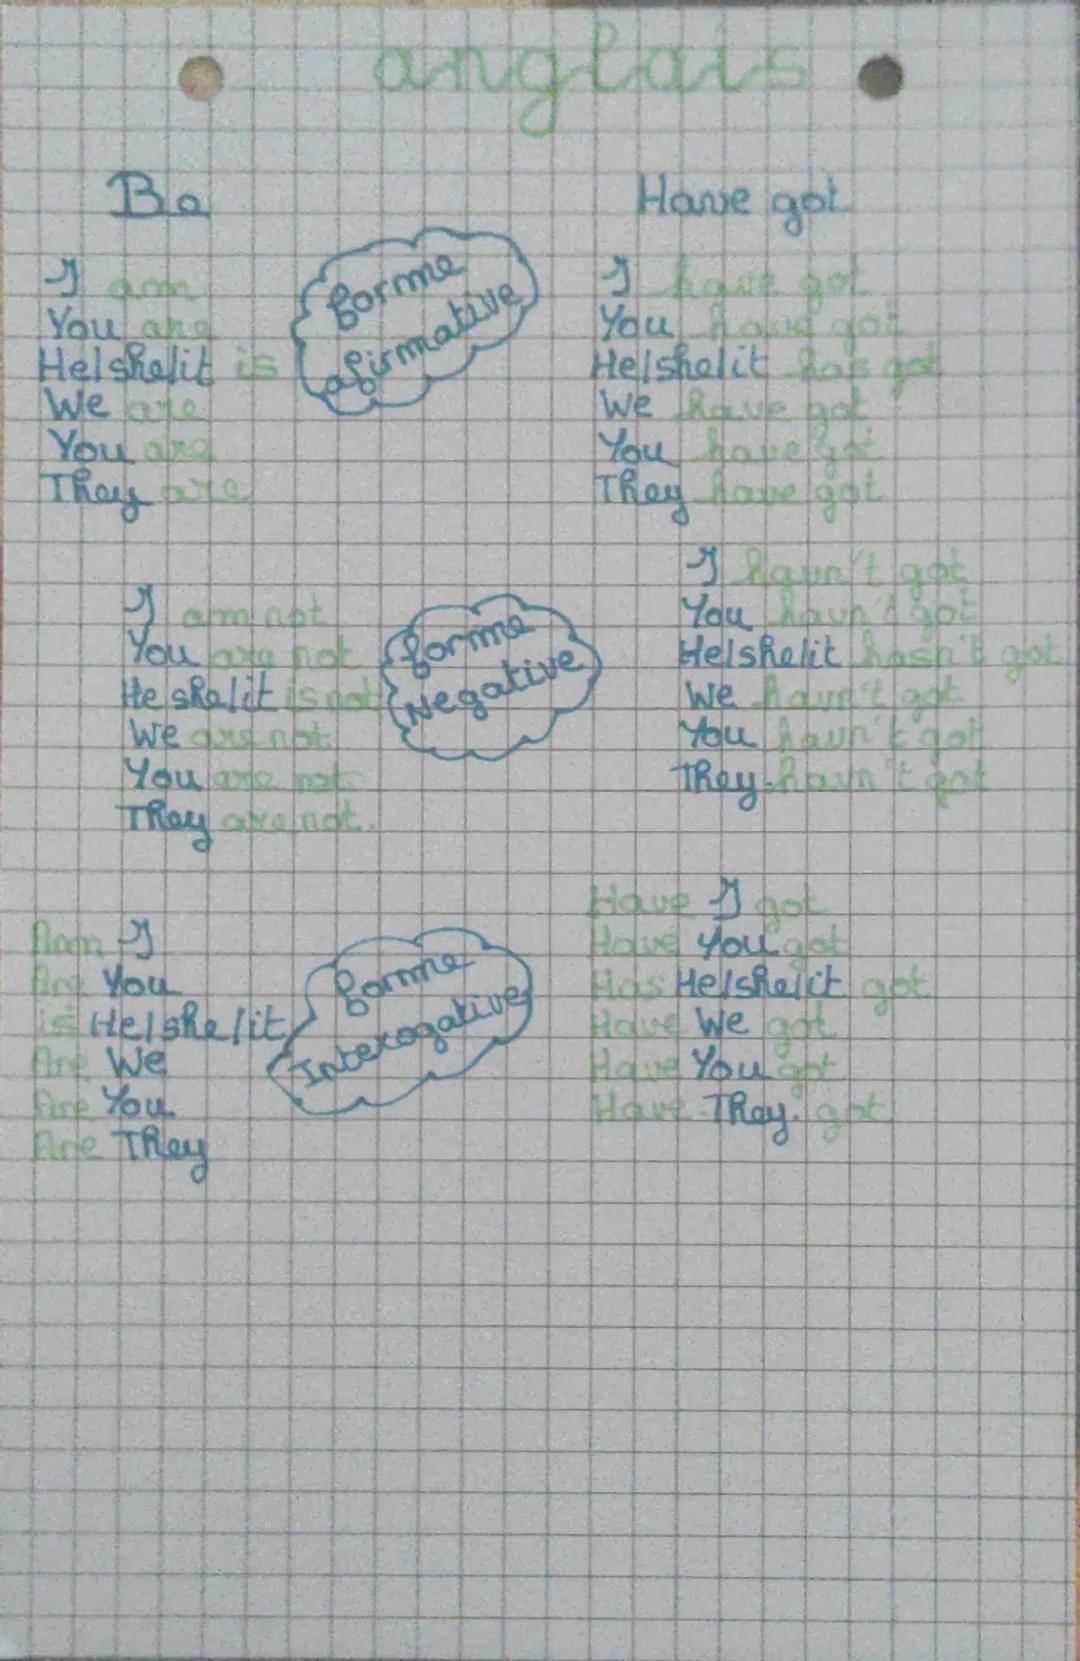 anglais
Be
Have got
forme
afirmative
I am
You are
He/she/it is
We are
You are
They are
I have got
You have got
He/she/it has got
We have got
You have got
They have got
forme
Negative
I am not
You are not
He she/it is not
We are not
You are not
They are not.
I havn't got
You havn't got
He/she/it hasn't got
We havn't got
You havn't got
They havn't got
forme
Interogative
Aam I
Are You
is He/she/it
Are We
Are You
Are They
Have I got
Have You got
Has He/she/it got
Have We got
Have You got
Have They got